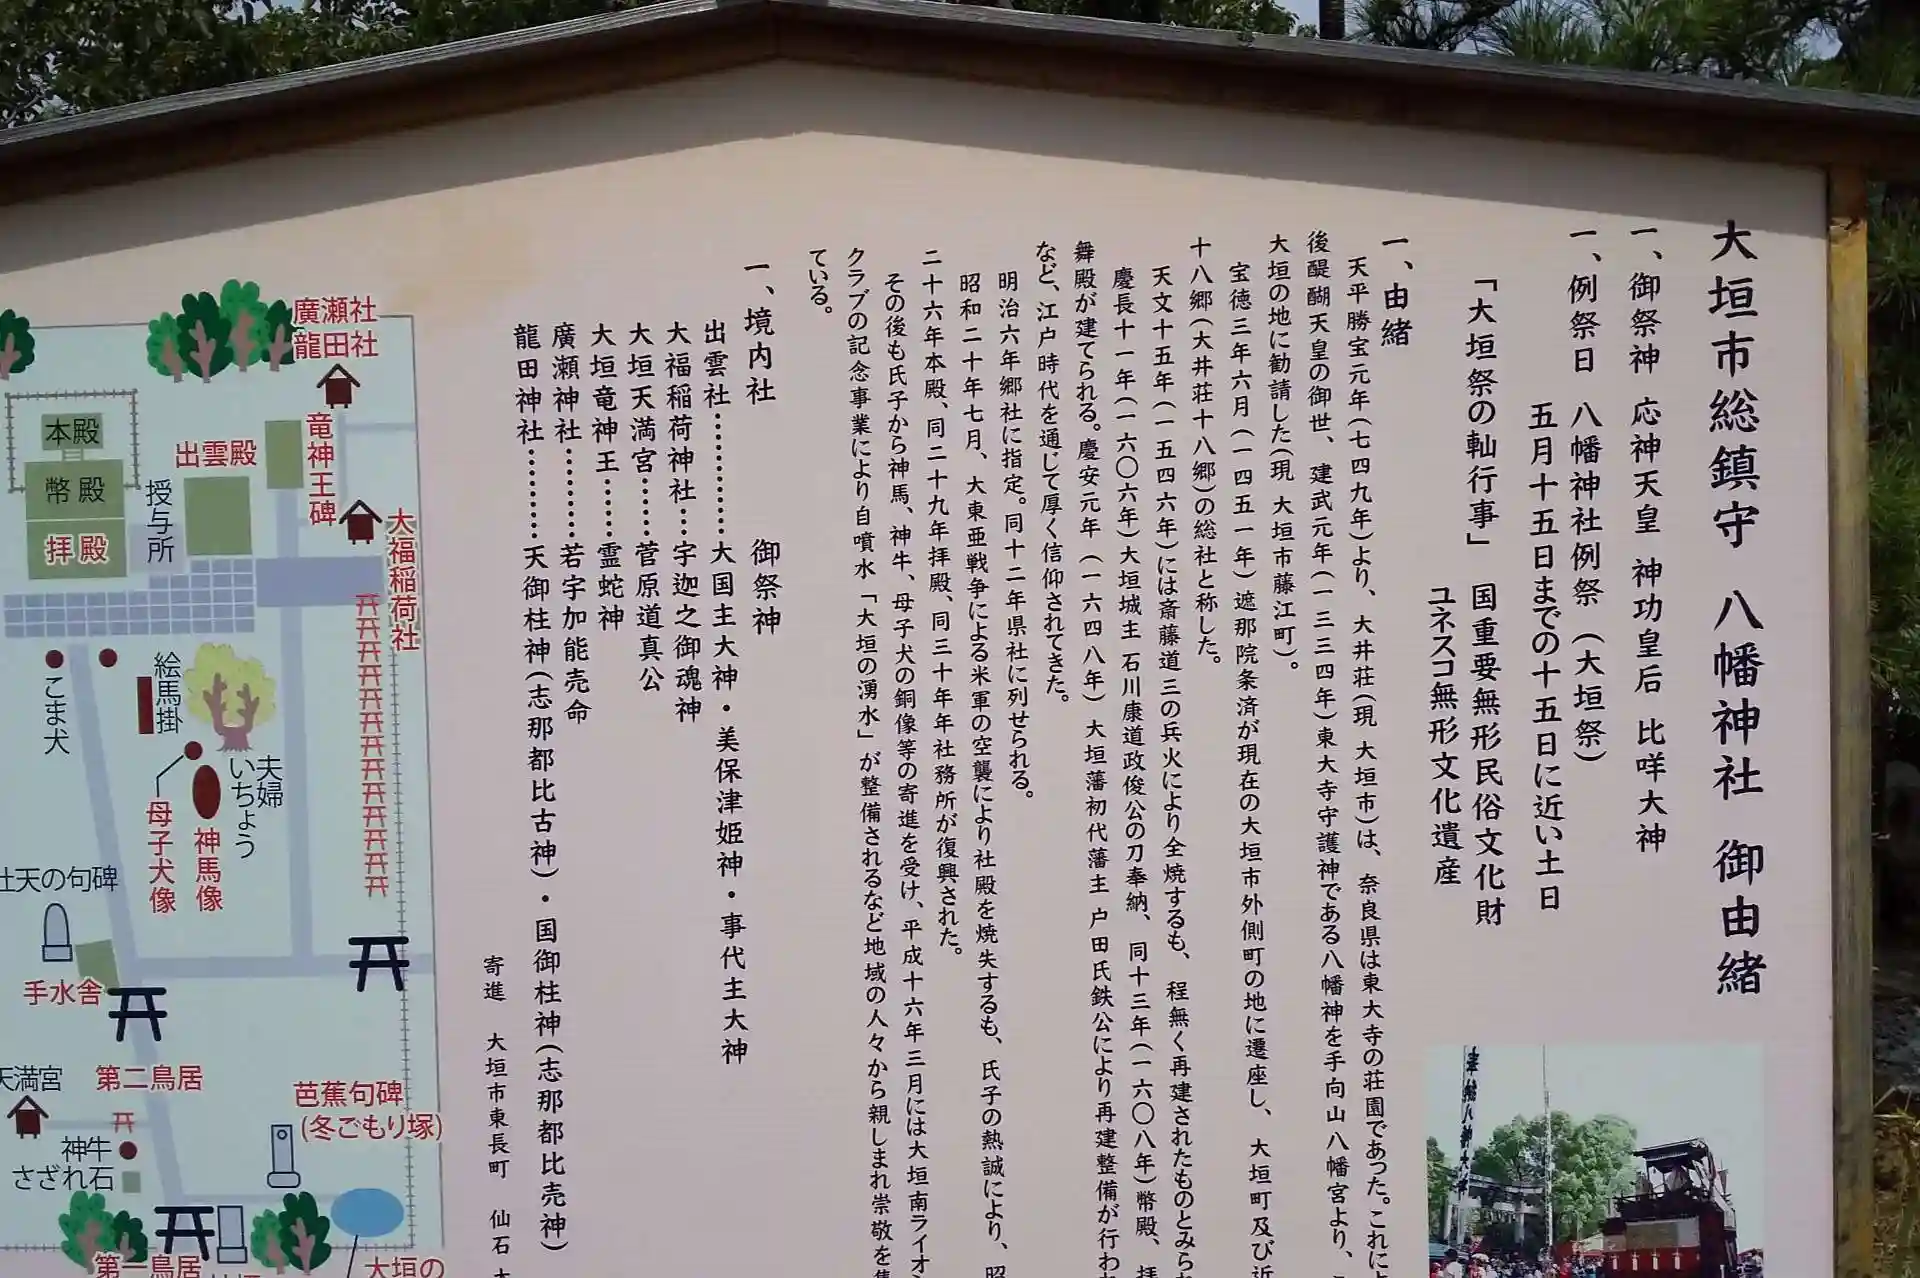 大垣市総鎮守 八幡神社 御由緒
一、御祭神 応神天皇 神功皇后 比咩大神
一、例祭日 八幡神社例祭(大垣祭)
五月十五日までの十五日に近い土日
「大垣祭の軕行事」 国重要無形民俗文化財
ユネスコ無形文化遺産
一、由緒
天平勝宝元年(七四九年)より、大井荘(現 大垣市)は、奈良県は東大寺の荘園であった。これによ
後醍醐天皇の御世、建武元年(一三三四年)東大寺守護神である八幡神を手向山八幡宮より、
大垣の地に勧請した(現 大垣市藤江町)。
宝徳三年六月(一四五一年)遮那院条済が現在の大垣市外側町の地に遷座し、大垣町及び近
十八郷(大井荘十八郷)の総社と称した。
天文十五年(一五四六年)には斎藤道三の兵火により全焼するも、程無く再建されたものとみられ
慶長十一年(一六〇六年)大垣城主 石川康道政俊公の刀奉納、同十三年(一六〇八年)幣殿、拝
舞殿が建てられる。慶安元年(一六四八年)大垣藩初代藩主 戸田氏鉄公により再建整備が行わ
など、江戸時代を通じて厚く信仰されてきた。
明治六年郷社に指定。同十二年県社に列せられる。
昭和二十年七月、大東亜戦争による米軍の空襲により社殿を焼失するも、氏子の熱誠により、昭
二十六年本殿、同二十九年拝殿、同三十年年社務所が復興された。
その後も氏子から神馬、神牛、母子犬の銅像等の寄進を受け、平成十六年三月には大垣南ライオン
クラブの記念事業により自噴水「大垣の湧水」が整備されるなど地域の人々から親しまれ崇敬を集
ている。
一、境内社 御祭神
出雲社……………大国主大神・美保津姫神・事代主大神
大福稲荷神社…宇迦之御魂神
大垣天満宮……菅原道真公
大垣竜神王……霊蛇神
廣瀬神社………若宇加能売命
龍田神社………天御柱神(志那都比古神)・国御柱神(志那都比売神)
寄進 大垣市東長町 仙石
廣瀬社
龍田社
本殿
幣殿
拝殿
授与所
出雲殿
竜神王碑
大福稲荷社
こま犬
絵馬掛
夫婦いちょう
母子犬像
神馬像
天の句碑
手水舎
第二鳥居
天満宮
神牛
さざれ石
芭蕉句碑
(冬ごもり塚)
第一鳥居
大垣の